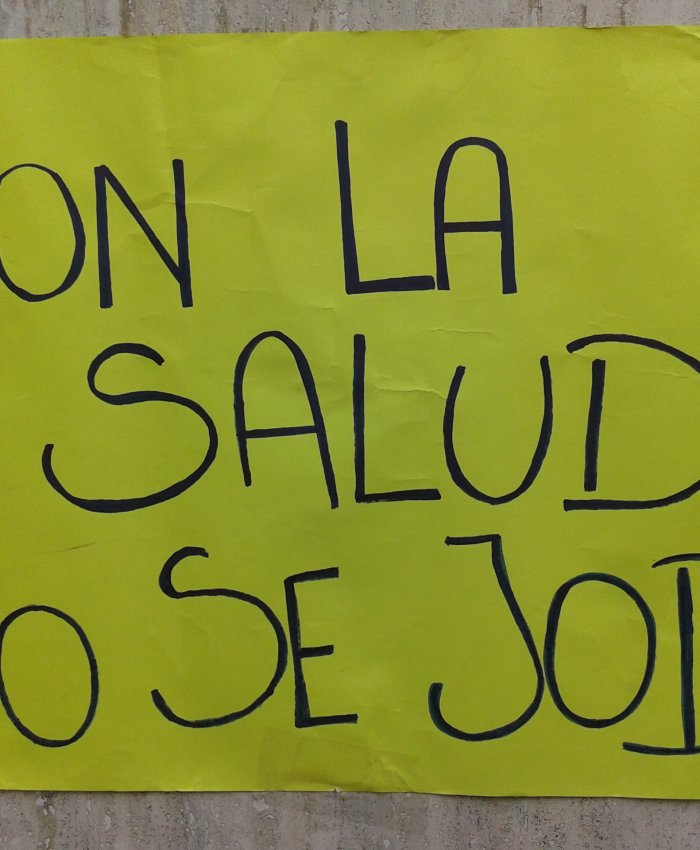 ON LA
SALUD
O SE JOD